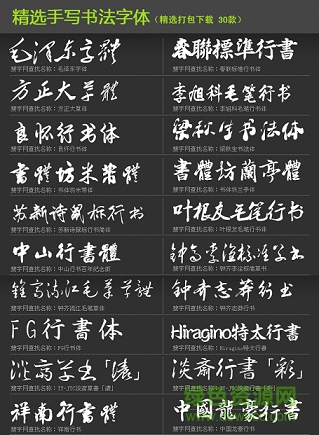 精选手写书法字体（精选打包下载 30款）
毛泽东字體
搜字网查找名称：毛泽东字体
春聯標準行書
搜字网查找名称：春联标准行书体
方正大草體
搜字网查找名称：方正大草体
李旭科毛笔行书
搜字网查找名称：李旭科毛笔行书
良怀行书体
搜字网查找名称：良怀行书体
梁秋生书法体
搜字网查找名称：梁秋生书法体
書體坊米芾體
搜字网查找名称：书体坊米芾体
書體坊蘭亭體
搜字网查找名称：书体坊兰亭体
苏新诗鼠标行书
搜字网查找名称：苏新诗鼠标行书简体
叶根友毛笔行书
搜字网查找名称：叶根友毛笔行书体
中山行書體
搜字网查找名称：中山行书百年纪念版
钟齐李洤标准草书
搜字网查找名称：钟齐李洤标草体
鍾齊流江毛草字體
搜字网查找名称：钟齐流江毛笔草体
钟齐志莽行书
搜字网查找名称：钟齐志莽行书
FG行書体
搜字网查找名称：FG行书体
Hiragino特太行書
搜字网查找名称：Hiragino特大行書
淡斎草書「濃」
搜字网查找名称：TT-JTC淡斎草書「濃」
淡斎行書「彩」
祥南行書體
搜字网查找名称：祥南行书
中國龍豪行書
搜字网查找名称：中国龙豪行书